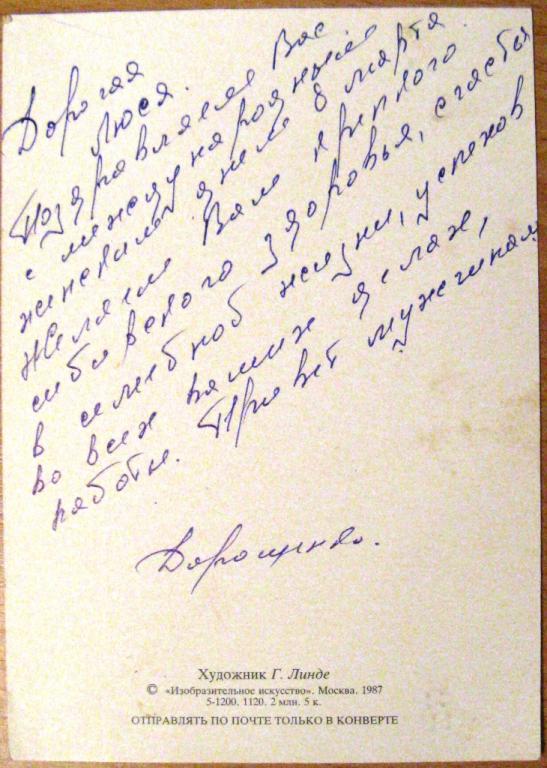 Дорогая
Люся.
Поздравляем Вас
с международным
женским днем 8 марта
Желаем Вам крепкого
сибирского здоровья, счастья
в семейной жизни, успехов
во всех ваших делах,
работе. Привет мужчинам.
Дорошенко.
Художник Г. Линде
© «Изобразительное искусство». Москва. 1987
5-1200. 1120. 2 млн. 5 к.
ОТПРАВЛЯТЬ ПО ПОЧТЕ ТОЛЬКО В КОНВЕРТЕ